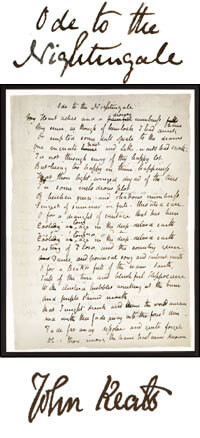 Ode to the
Nightingale
Ode to the Nightingale
Heart aches and a drowsy numbness
My sense as though of hemlock I had
Or emptied some opiate to the drains
One minute and Lethe-wards had sunk
'Tis not through envy of thy happy lot
But being too happy in thine happiness
That thou light winged dryad of the trees
In some melodious plot
Of beechen green and shadows numberless
of summer in full throated ease
O for a draught of vintage that has been
in the deep delved earth
in the deep delved earth
Tasting of Flora and the country green
Dance, and provençal song and sunburnt mirth
O for a Beaker full of the warm South
Full of the true and blushful Hippocrene
With bubbles winking at the brim
And purple stained mouth
That I might drink and leave the world unseen
And with thee fade away into the forest dim
Fade far away dissolve and quite forget
What thou among the leaves hast never known
John Keats